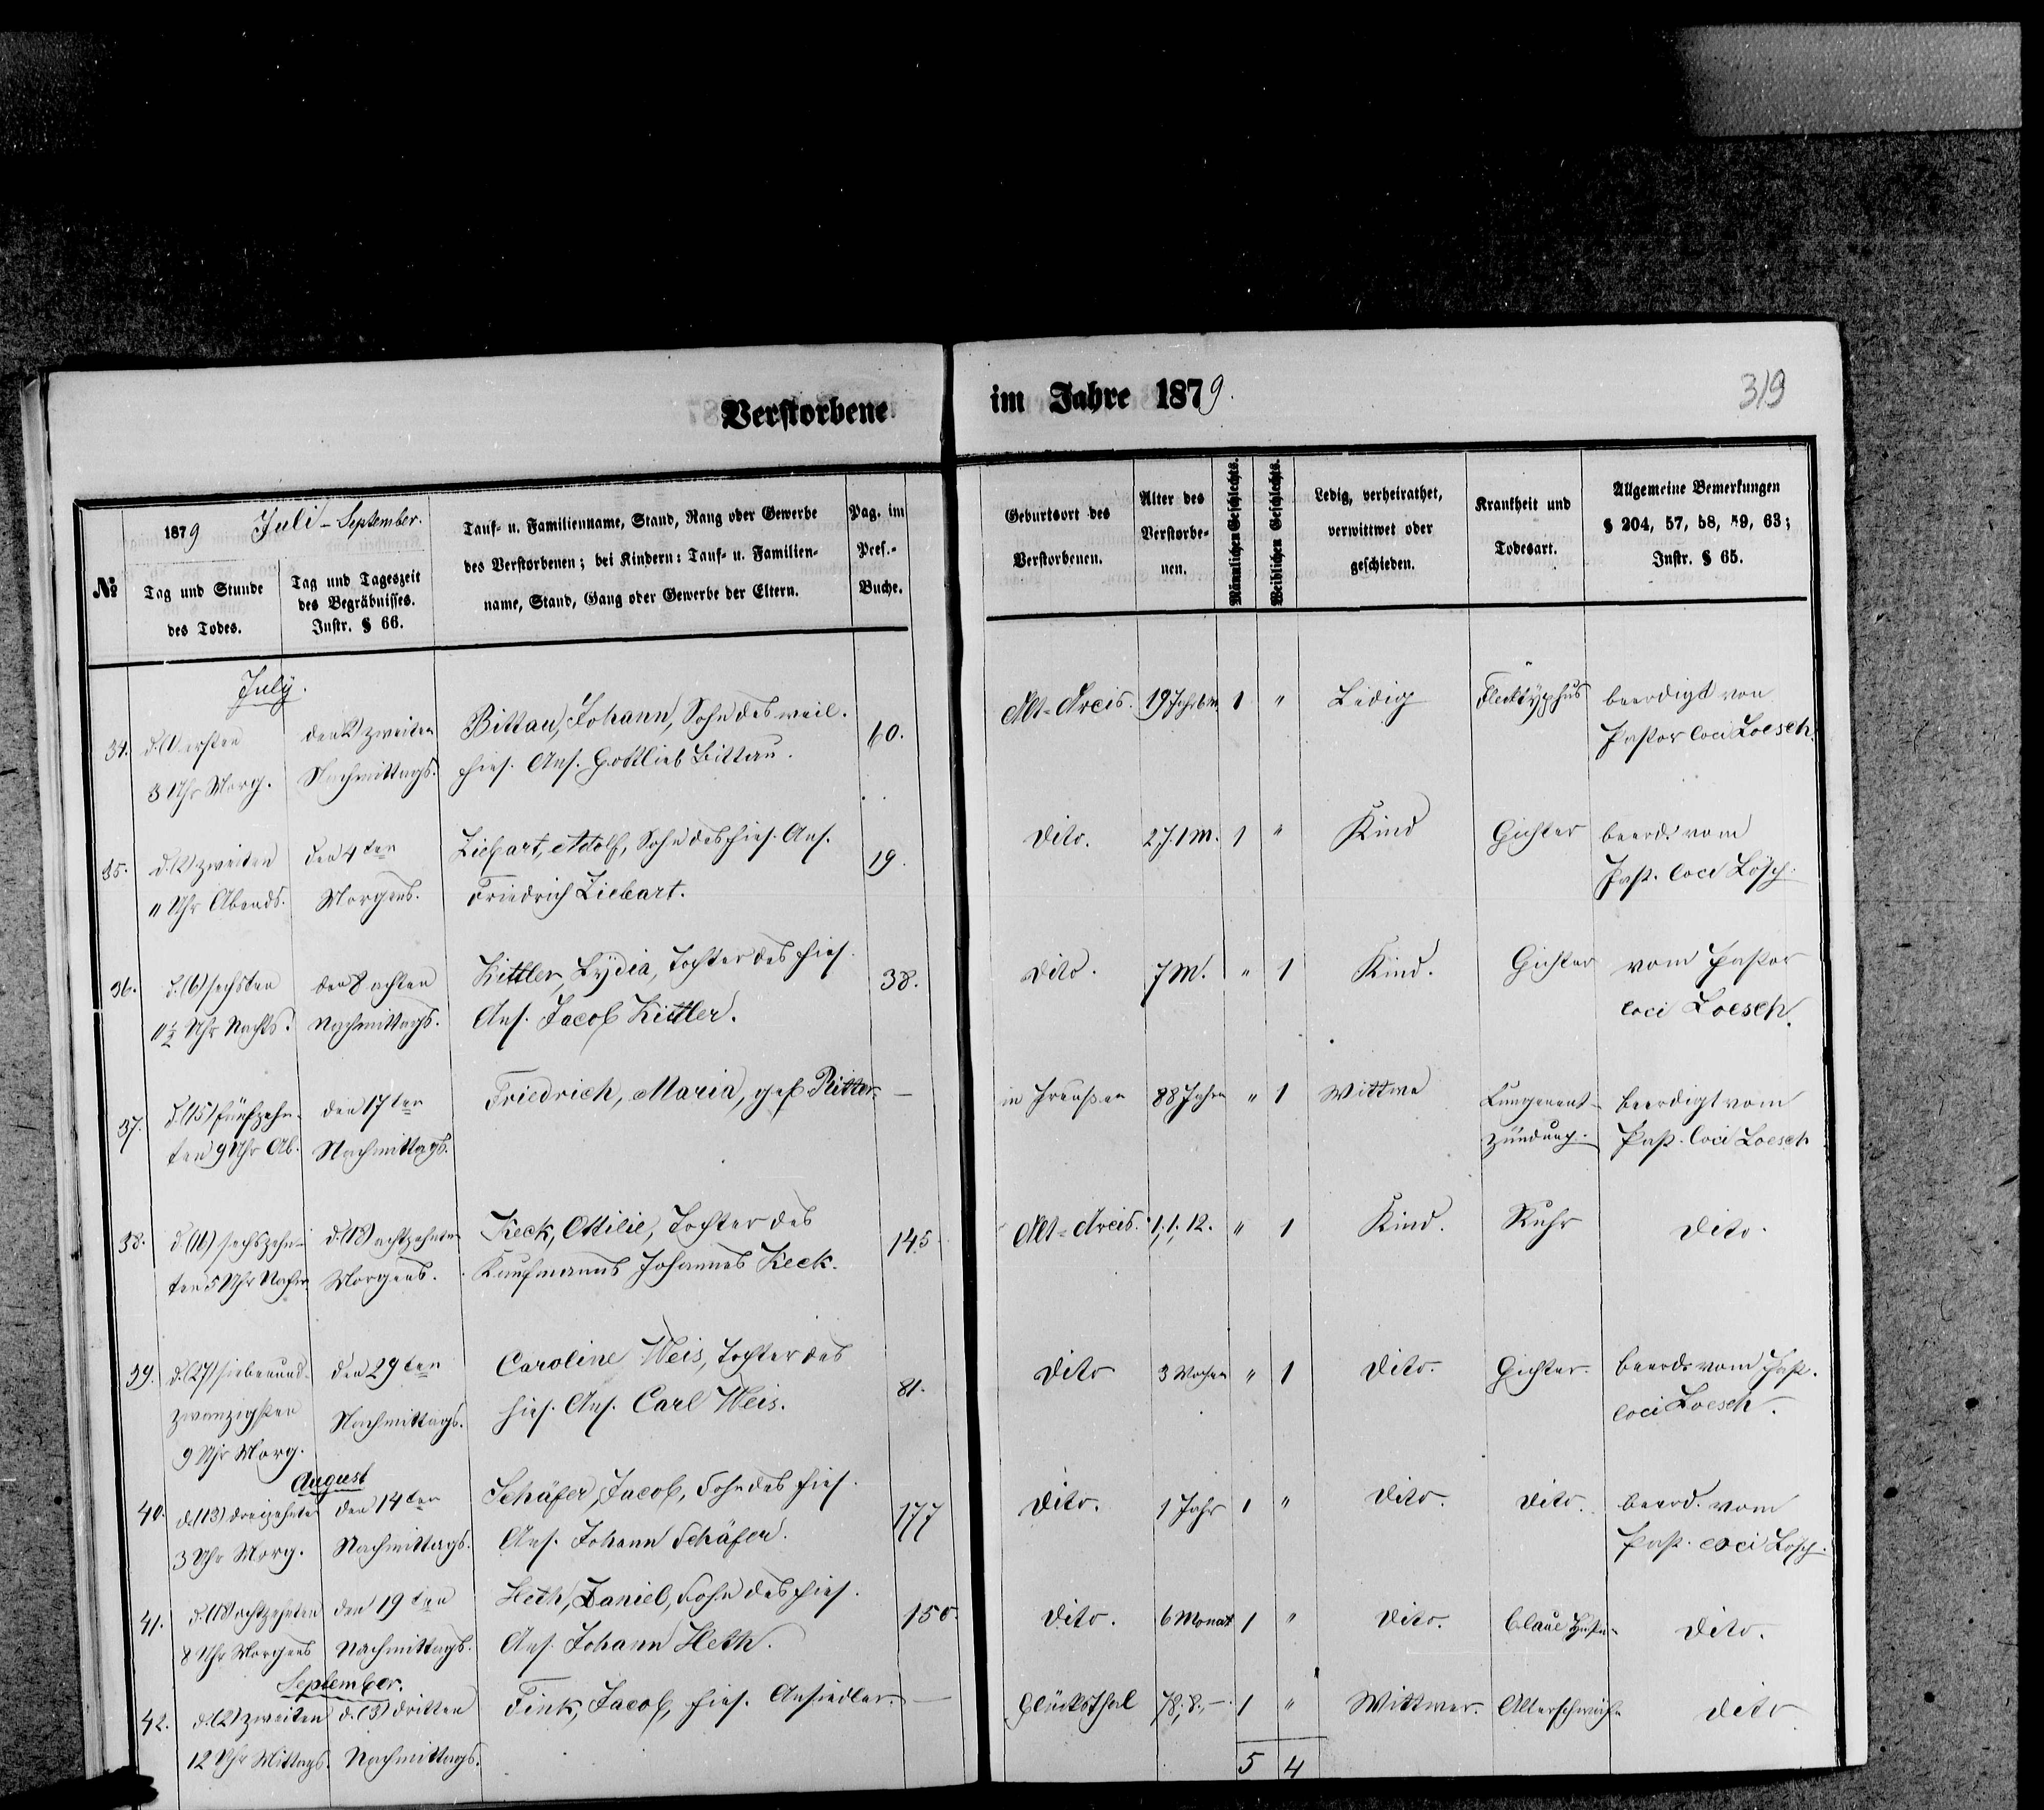 Verstorbene im Jahre 1879.
319
№
1879 Juli - September.
Tag und Stunde
des Todes.
Tag und Tageszeit
des Begräbnisses.
Instr. § 66.
Tauf- u. Familienname, Stand, Rang oder Gewerbe
des Verstorbenen; bei Kindern: Tauf- u. Familien-
name, Stand, Gang oder Gewerbe der Eltern.
Pag. im
Pers.-
Buche.
Geburtsort des
Verstorbenen.
Alter des
Verstorbe-
nen.
Männlichen Geschlechts.
Weiblichen Geschlechts.
Ledig, verheirathet,
verwittwet oder
geschieden.
Krankheit und
Todesart.
Allgemeine Bemerkungen
§ 204, 57, 58, 59, 63;
Instr. § 65.
July.
34. d. (1) ersten den 2 zweiten Bittau, Johann, Sohn des weil. 60. Alt-Arcis. 19 Jahr 1 " Ledig Flecktyphus beerdigt von
3 Uhr Morg. Nachmittags. hies. Ans. Gottlieb Bittau. Pastor loci Loesch.
35. d. (2) zweiten den 4ten Liebart, Adolf, Sohn des hies. Ans. 19. dito. 2 J. 1 M. 1 " Kind Gichter beerd. vom
11 Uhr Abends. Morgens. Friedrich Liebart. Past. loci Lösch.
36. d. (6) sechsten den 8 achten Kittler, Lydia, Tochter des hies. 38. dito. 7 M. " 1 Kind. Gichter vom Pastor
11½ Uhr Nachts. Nachmittags. Ans. Jacob Kittler. loci Loesch.
37. d. (15) fünfzehn- den 17ten Friedrich, Maria, geb. Ritter — in Preußen 88 Jahre " 1 Wittwe Lungenent- beerdigt vom
ten 9 Uhr Ab. Nachmittags. zündung. Past. loci Loesch
38. d. (16) sechszehn- d. (18) achtzehnten Keck, Ottilie, Tochter des 145 Alt-Arcis. 1, 1, 12. " 1 Kind. Ruhr dito.
ten 5 Uhr Nachm. Morgens. Kaufmanns Johannes Keck.
39. d. (27) siebenund- den 29ten Caroline Weis, Tochter des 81. dito 3 Wochen " 1 dito. Gichter. beerd. vom Past.
zwanzigsten Nachmittags. hies. Ans. Carl Weis. loci Loesch.
9 Uhr Morg.
August
40. d. (13) dreizehnten den 14ten Schäfer, Jacob, Sohn des hies. 177 dito. 1 Jahr 1 " dito. dito. beerd. vom
3 Uhr Morg. Nachmittags. Ans. Johann Schäfer. Past. loci Lösch.
41. d. (18) achtzehnten den 19ten Heth, Daniel, Sohn des hies. 150. dito. 6 Monat 1 " dito. blaue Husten dito.
8 Uhr Morgens Nachmittags. Ans. Johann Heth.
September.
42. d. (2) zweiten d. (3) dritten Fink, Jacob, hies. Ansiedler. — Glücksthal 78, 8, —. 1 " Wittwer. Altersschwäche dito
12 Uhr Mittags. Nachmittags.
5 4